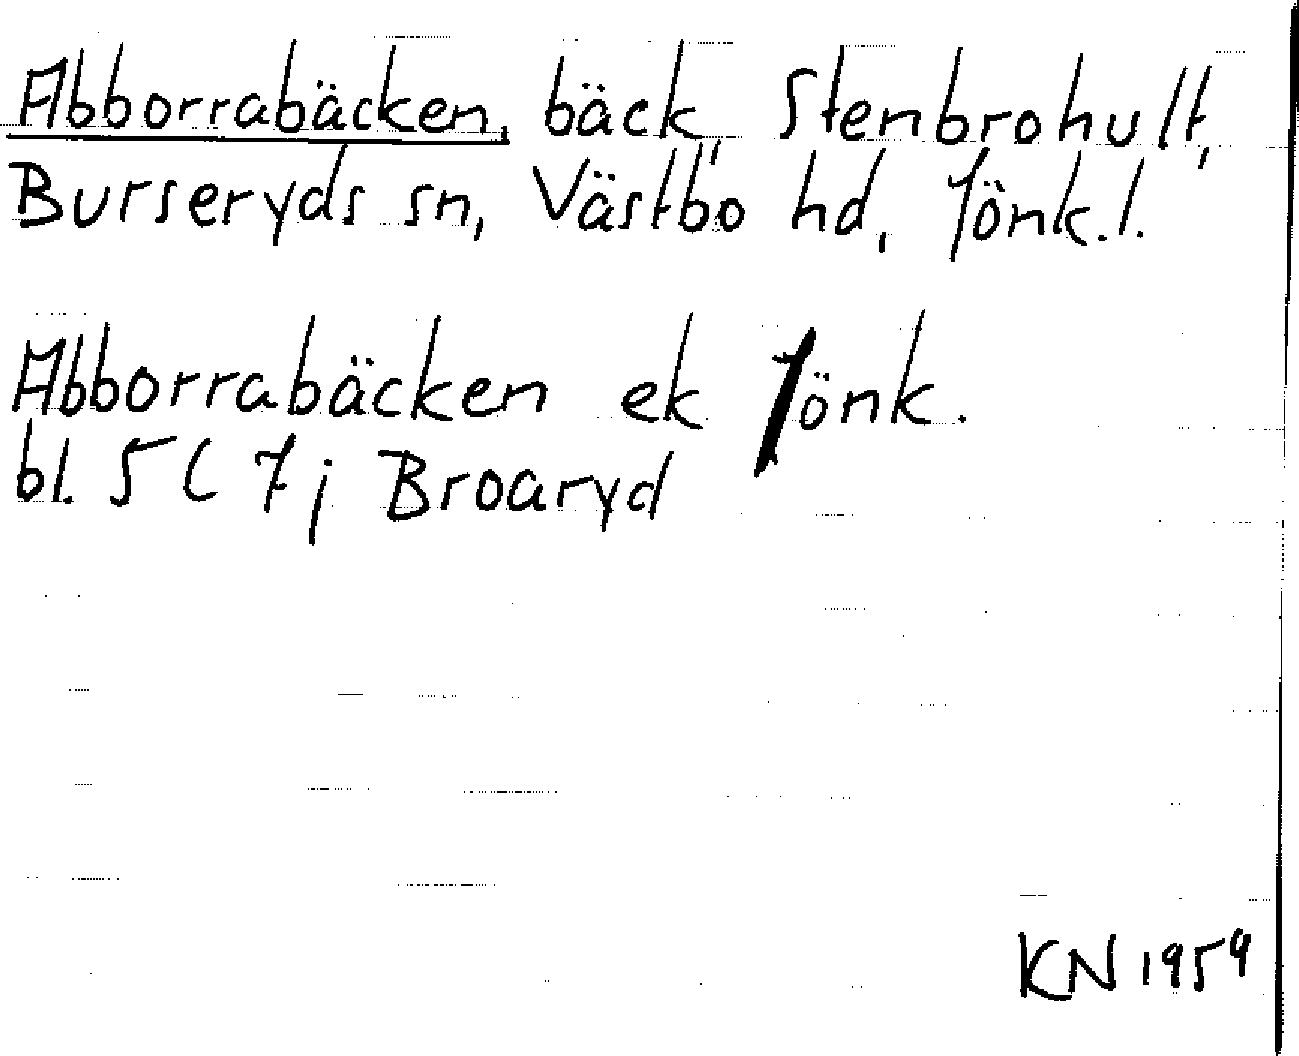 Abborrabäcken, bäck, Stenbrohult,
Burseryds sn, Västbo hd, Jönk.l.
Abborrabäcken ek Jönk.
bl. 5C 7j Broaryd
KN 1959